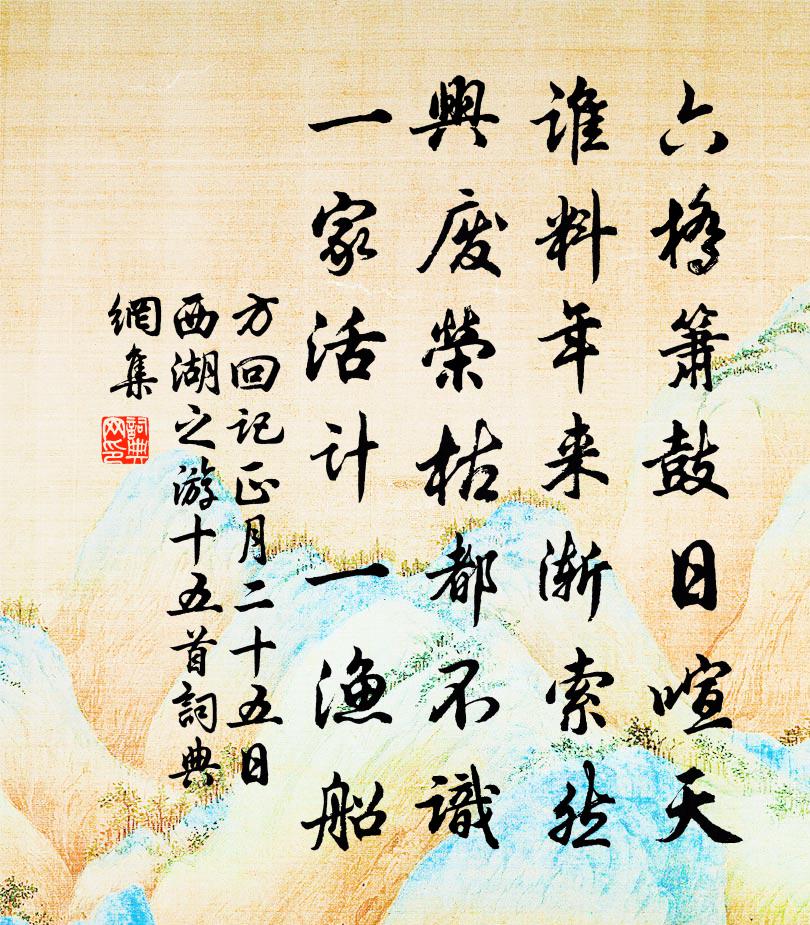 六橋簫鼓日喧天
誰料年来渐索然
興廢榮枯都不識
一家活计一漁船
方回记正月二十五日
西湖之游十五首詞典
網集
詞典
网印